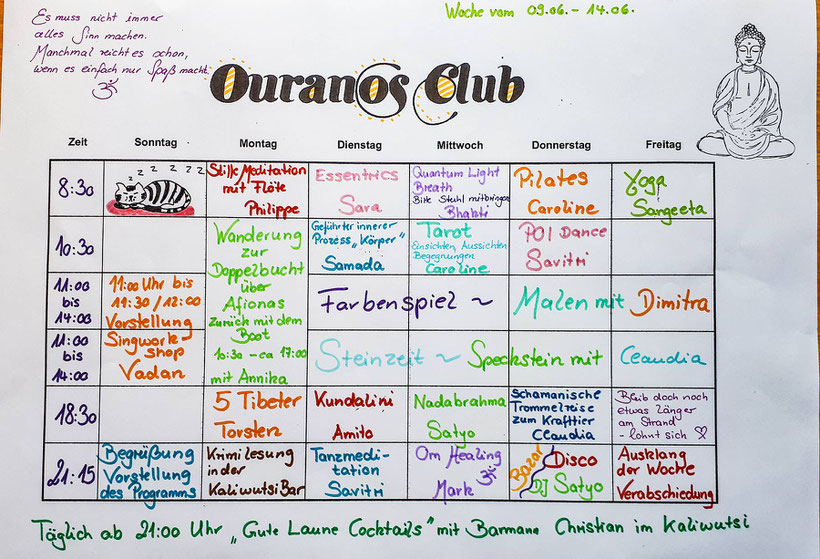 Es muss nicht immer
alles Sinn machen.
Manchmal reicht es schon,
wenn es einfach nur Spaß macht.
Woche vom 09.06. - 14.06.
Ouranos Club
Zeit Sonntag Montag Dienstag Mittwoch Donnerstag Freitag
8:30
z z z z z z
Stille Meditation
mit Flöte
Philippe
Essentrics
Sara
Quantum Light
Breath
Bitte Stuhl mitbringen
Bhakti
Pilates
Caroline
Yoga
Sangeeta
10:30
Wanderung
zur
Doppelbucht
über
Afionas
zurück mit dem
Boot
10:30 - ca 17:00
mit Annika
Geführter innerer
Prozess „Körper"
Samada
Tarot
Einsichten, Aussichten
Begegnungen
Caroline
POI Dance
Savitri
11:00
bis
14:00
11:00 Uhr bis
11:30 / 12:00
Vorstellung
Singwork-
shop
Vadan
Farbenspiel ~ Malen mit Dimitra
11:00
bis
14:00
Steinzeit ~ Speckstein mit Claudia
18:30
5 Tibeter
Torsten
Kundalini
Amito
Nadabrahma
Satyo
Schamanische
Trommelreise
zum Krafttier
Claudia
Bleib doch noch
etwas länger
am Strand
- lohnt sich ♡
21:15
Begrüßung
Vorstellung
des Programms
Krimilesung
in der
Kaliwutsi Bar
Tanzmedi-
tation
Savitri
Om Healing
ॐ
Mark
Bazar
Disco
DJ Satyo
Ausklang
der Woche
Verabschiedung
Täglich ab 21:00 Uhr „Gute Laune Cocktails" mit Barmann Christian im Kaliwutsi